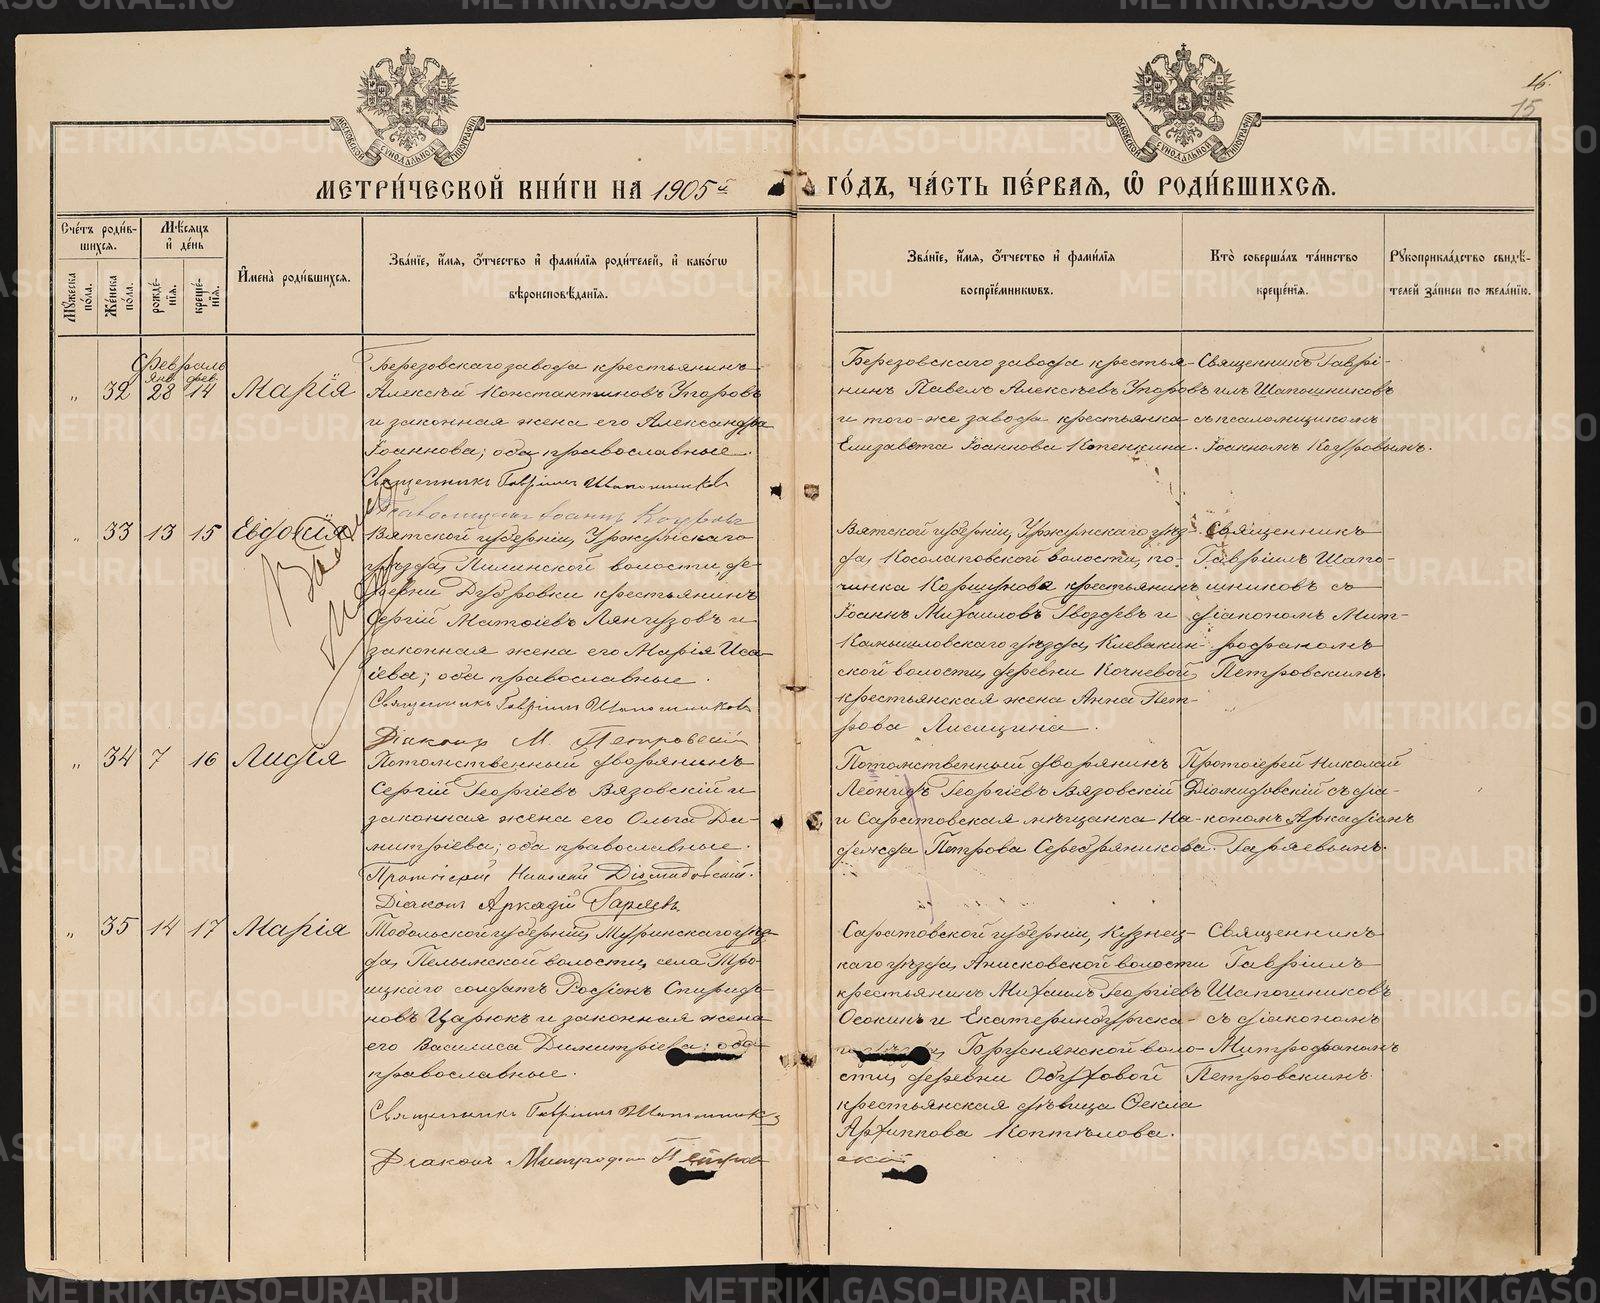 16.
15
МОСКОВСКОЙ СѴНОДАЛЬНОЙ ТИПОГРАФІИ
МОСКОВСКОЙ СѴНОДАЛЬНОЙ ТИПОГРАФІИ
МЕТРИ́ЧЕСКОЙ КНИ́ГИ НА 1905й
ГО́ДЪ, ЧА́СТЬ ПЕ́РВАЯ, Ѡ҆ РОДИ́ВШИХСЯ.
Сче́тъ роди́в-
шихся.
Мѣ́сяцъ
и҆ де́нь
Мꙋ́жеска по́ла.
Же́нска по́ла.
рожде́-
нїя.
креще́-
нїя.
И҆мена̀ роди́вшихся.
Зва́нїе, и҆́мя, ѻ҆́тчество и҆ фами́лїя роди́телей, и҆ како́гѡ
вѣроисповѣ́данїя.
Зва́нїе, и҆́мя, ѻ҆́тчество и҆ фами́лїя
воспрїе́мникѡвъ.
Кто̀ соверша́лъ та́инство
креще́нїя.
Рꙋкоприкла́дство свидѣ́-
телей за́писи по жела́нїю.
Февраль
янв. фев.
„ 32 28 14 Марія
Березовскаго завода крестьянинъ
Алексѣй Константиновъ Упоровъ
и законная жена его Александра
Іоаннова; оба православные.
Священникъ Гавріилъ Шапошниковъ
Іоаннъ
Березовскаго завода крестья-
нинъ Павелъ Алексѣевъ Упоровъ
и того-же завода крестьянка
Елизавета Іоаннова Копенкина.
Священникъ Гаврі-
илъ Шапошниковъ
съ псаломщикомъ
Іоанномъ
„ 33 13 15 Евдокія
Вятской губерніи, Уржумскаго
уѣзда, Пилинской волости, де-
ревни Дубровки крестьянинъ
Сергій Матѳіевъ Лянгузовъ и
законная жена его Марія Иса-
іева; оба православные.
Священникъ Гавріилъ Шапошниковъ
Діаконъ М. Петровскій
Вятской губерніи, Уржумскаго уѣз-
да, Косолаповской волости, по-
чинка Коршунова крестьянинъ
Іоаннъ Михаиловъ Гвоздевъ и
Камышловскаго уѣзда, Клевакин-
ской волости, деревни Кочневой,
крестьянская жена Анна Пет-
рова Лисицина.
Священникъ
Гавріилъ Шапо-
шниковъ съ
діакономъ Мит-
рофаномъ
Петровскимъ.
„ 34 7 16 Лидія
Потомственный дворянинъ
Сергій Георгіевъ Вязовскій и
законная жена его Ольга Ди-
митріева; оба православные.
Протоіерей Николай Діомидовскій.
Діаконъ Аркадій Гаряевъ
Потомственный дворянинъ
Леонидъ Георгіевъ Вязовскій
и Саратовская мѣщанка На-
дежда Петрова Серебрякова.
Протоіерей Николай
Діомидовскій съ діа-
кономъ Аркадіемъ
Гаряевымъ.
„ 35 14 17 Марія
Тобольской губерніи, Туринскаго уѣз-
да, Пелымской волости, села Тро-
ицкаго солдатъ Родіонъ Спиридо-
новъ Царюкъ и законная жена
его Василиса Димитріева; оба
православные.
Священникъ Гавріилъ Шапошниковъ
Діаконъ Митрофанъ Петров-
ской
Саратовской губерніи, Кузнец-
каго уѣзда, Анисковской волости
крестьянинъ Михаилъ Георгіевъ
Осокинъ и Екатеринбургска-
го уѣзда, Бруснянской воло-
сти, деревни Обуховой
крестьянская дѣвица Ѳекла
Архиппова Коптѣлова.
Священникъ
Гавріилъ
Шапошниковъ
съ діакономъ
Митрофаномъ
Петровскимъ.
METRIKI.GASO-URAL.RU